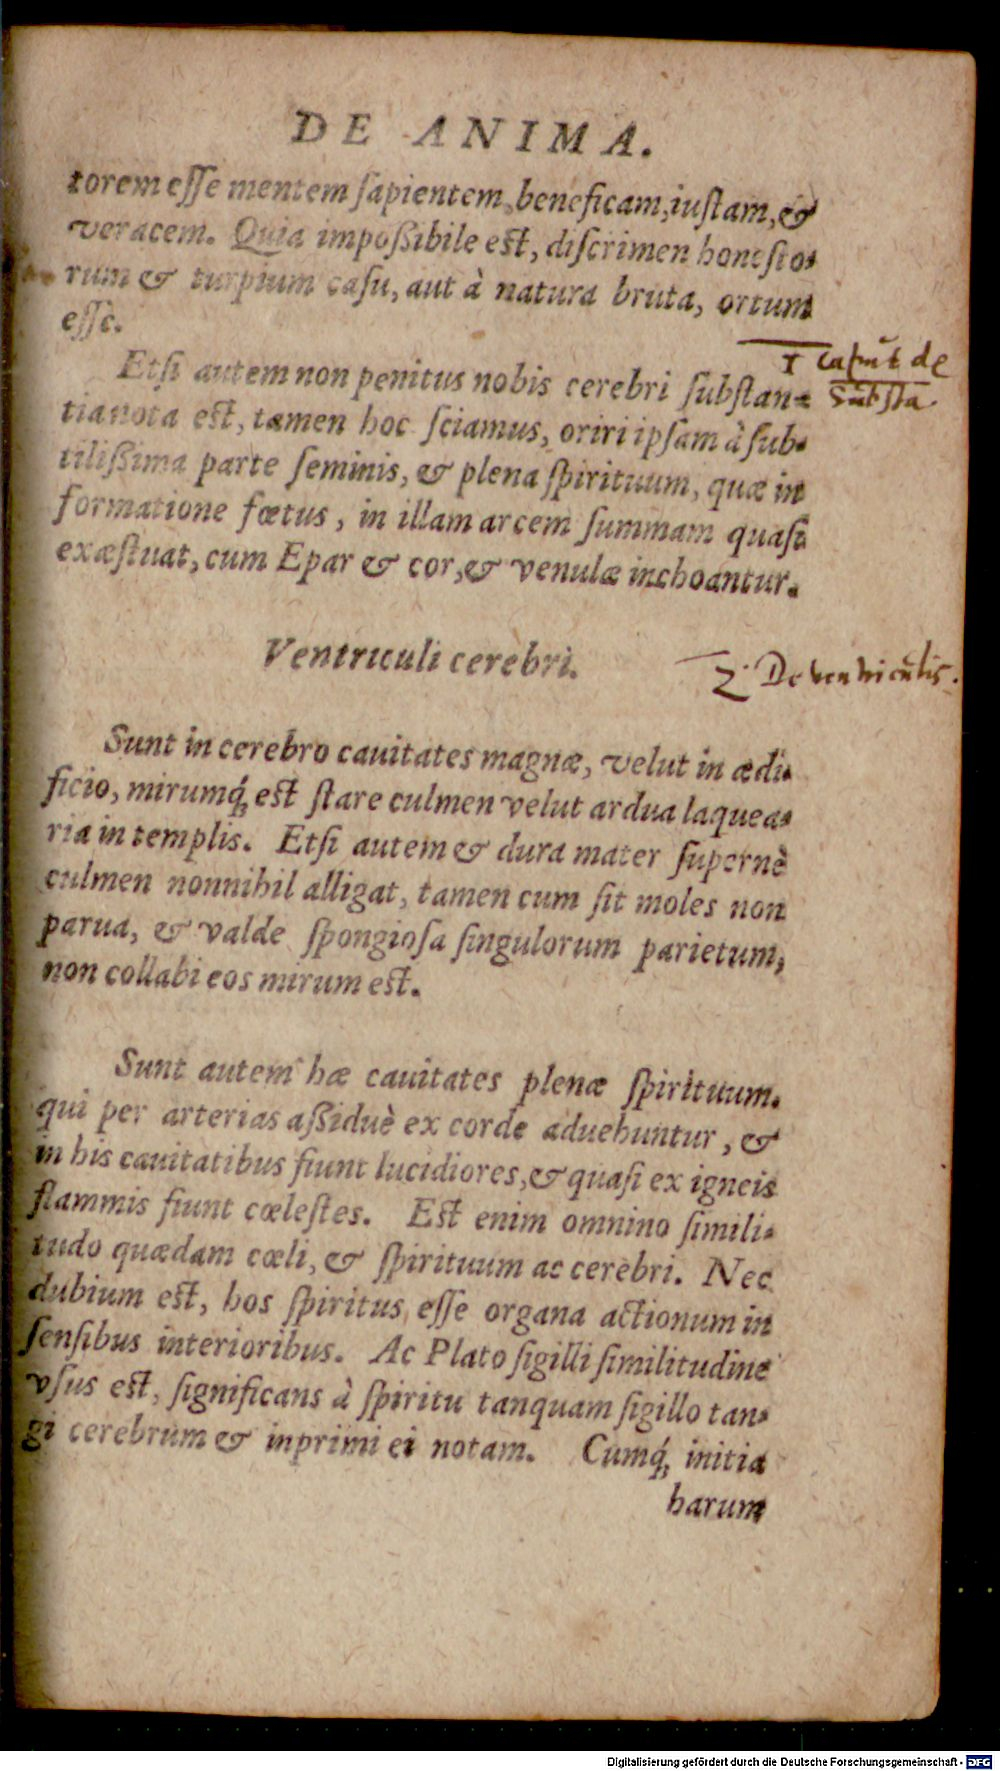 DE ANIMA.
torem esse mentem sapientem, beneficam, iustam, &
veracem. Quia impoßibile est, discrimen honesto-
rum & turpium casu, aut à natura bruta, ortum
esse.
Etsi autem non penitus nobis cerebri substan-
tia nota est, tamen hoc sciamus, oriri ipsam à sub-
tilißima parte seminis, & plena spirituum, quæ in
formatione fœtus, in illam arcem summam quasi
exæstuat, cum Epar & cor, & venulæ inchoantur.
1 caput de
substa
Ventriculi cerebri.
2. De ventriculis.
Sunt in cerebro cauitates magnæ, velut in ædi-
ficio, mirumq́; est stare culmen velut ardua laquea-
ria in templis. Etsi autem & dura mater supernè
culmen nonnihil alligat, tamen cum sit moles non
parua, & valde spongiosa singulorum parietum,
non collabi eos mirum est.
Sunt autem hæ cauitates plenæ spirituum.
qui per arterias aßiduè ex corde aduehuntur, &
in his cauitatibus fiunt lucidiores, & quasi ex igneis
flammis fiunt cœlestes. Est enim omnino simili-
tudo quædam cœli, & spirituum ac cerebri. Nec
dubium est, hos spiritus esse organa actionum in
sensibus interioribus. Ac Plato sigilli similitudine
vsus est, significans à spiritu tanquam sigillo tan-
gi cerebrum & inprimi ei notam. Cumq́; initia
harum
Digitalisierung gefördert durch die Deutsche Forschungsgemeinschaft - DFG